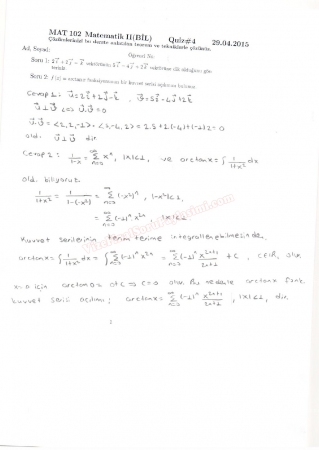 MAT 102 Matematik II(BİL) Quiz#4 29.04.2015
Çözümlerinizi bu derste anlatılan teorem ve tekniklerle çözünüz.
Ad, Soyad: Öğrenci No:
Soru 1: 2i + 2j − k vektörünün 5i − 4j + 2k vektörüne dik olduğunu gösteriniz.
Soru 2: f(x) = arctanx fonksiyonunun bir kuvvet serisi açılımını bulunuz.
Cevap 1: u = 2i + 2j − k , v = 5i − 4j + 2k
u ⊥ v ⟺ u.v = 0
u.v = <2, 2, −1> . <5, −4, 2> = 2.5 + 2(−4) + (−1)2 = 0
old. u ⊥ v dir.
Cevap 2: 1/(1−x) = Σ_{n=0}^∞ x^n , |x|<1, ve arctanx = ∫ 1/(1+x²) dx
old. biliyoruz.
1/(1+x²) = 1/(1−(−x²)) = Σ_{n=0}^∞ (−x²)^n , |−x²|<1
= Σ_{n=0}^∞ (−1)^n x^{2n} , |x|<1
Kuvvet serilerinin terim terime integrallenebilmesinden,
arctanx = ∫ 1/(1+x²) dx = ∫ Σ_{n=0}^∞ (−1)^n x^{2n} dx = Σ_{n=0}^∞ (−1)^n x^{2n+1}/(2n+1) + C , C∈ℝ, olur.
x=0 için arctan0 = 0+C ⇒ C=0 olur. Bu nedenle arctanx fonk.
kuvvet serisi açılımı; arctanx = Σ_{n=0}^∞ (−1)^n x^{2n+1}/(2n+1) , |x|<1, dir.